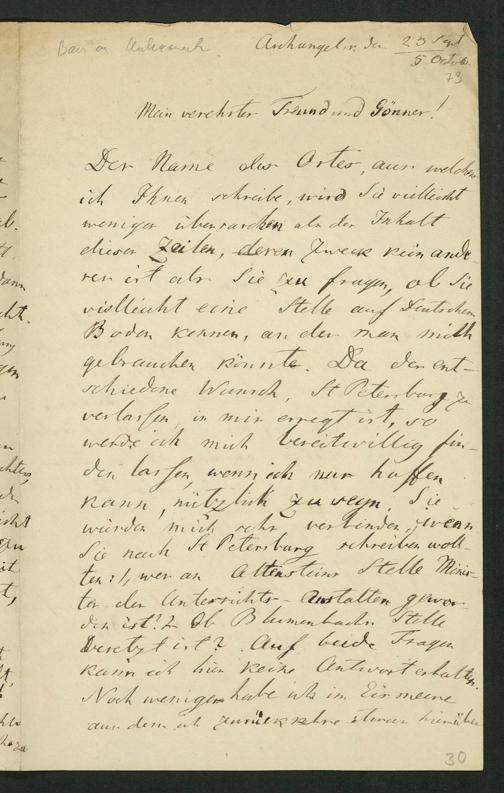 Baer an
Archangelsk den 23 Sept
5 Octob.
73
Mein verehrter Freund und Gönner!
Der Name des Ortes, aus welchem
ich Ihnen schreibe, wird Sie vielleicht
weniger überraschen als der Inhalt
dieser Zeilen, deren Zweck kein ande-
rer ist als Sie zu fragen, ob Sie
vielleicht eine Stelle auf Deutschem
Boden kennen, an der man mich
gebrauchen könnte. Da der ent-
schiedene Wunsch, St Petersburg zu
verlassen, in mir erregt ist, so
werde ich mich bereitwillig fin-
den lassen, wenn ich nur hoffen
kann, nützlich zu seyn. Sie
würden mich sehr verbinden, wenn
Sie nach St Petersburg schreiben woll-
ten: 1, wer an Altensteins Stelle Minis-
ter der Unterrichts-Anstalten gewor-
den ist? 2 Ob Blumenbachs Stelle
besetzt ist? Auf beide Fragen
kann ich hier keine Antwort erhalten.
Noch weniger habe ich im Eismeere
aus dem ich zurückkehre etwas hierüber
30